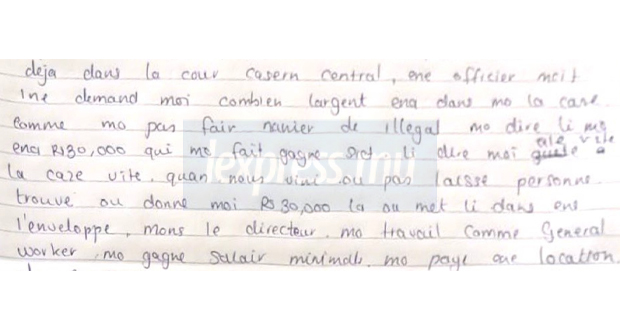 deja dans la cour casern central, ene officier mcit
ine demand moi combien largent ena dans mo la case
comme mo pas fair nanier de illegal mo dire li mo
ena Rs30,000 qui mo fait gagne srot li dire moi alé vite a
la case vite. quan nous vini ou pas laisse personne
trouve ou donne moi Rs 30,000 la ou met li dans ene
l'enveloppe, mons le directeur mo travail comme General
worker, mo gagne salair minimal. mo paye ene location.
lexpress.mu